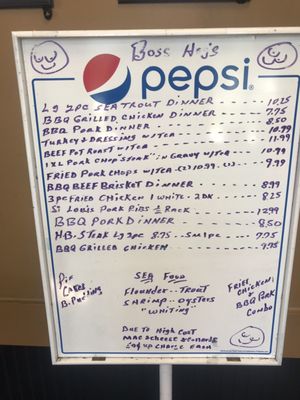 Boss Hog's
pepsi
Lg 2pc Sea Trout Dinner - 10.25
BBQ Grilled Chicken Dinner - 7.75
BBQ Pork Dinner - 8.50
Turkey & Dressing w/Tea - 10.99
Beef Pot Roast w/Tea - 11.99
1 XL Pork Chop "Steak" in Gravy w/Tea - 10.99
Fried Pork Chops w/Tea (2) 10.99 (1) - 9.99
BBQ Beef Brisket Dinner - 8.99
3pc Fried Chicken 1 White - 2 DK - 8.25
St Louis Pork Ribs ½ Rack - 12.99
BBQ Pork Dinner - 8.50
H.B. Steak Lg 2pc 8.75 - Sm 1pc - 7.75
BBQ Grilled Chicken - 7.75
Pie
Cakes
B. Pudding
Sea Food
Flounder - Trout
Shrimp - Oysters
"Whiting"
Fried
Chicken,
BBQ Pork
Combo
Due to High Cost
Mac & Cheese & Collards
Up Charge Each